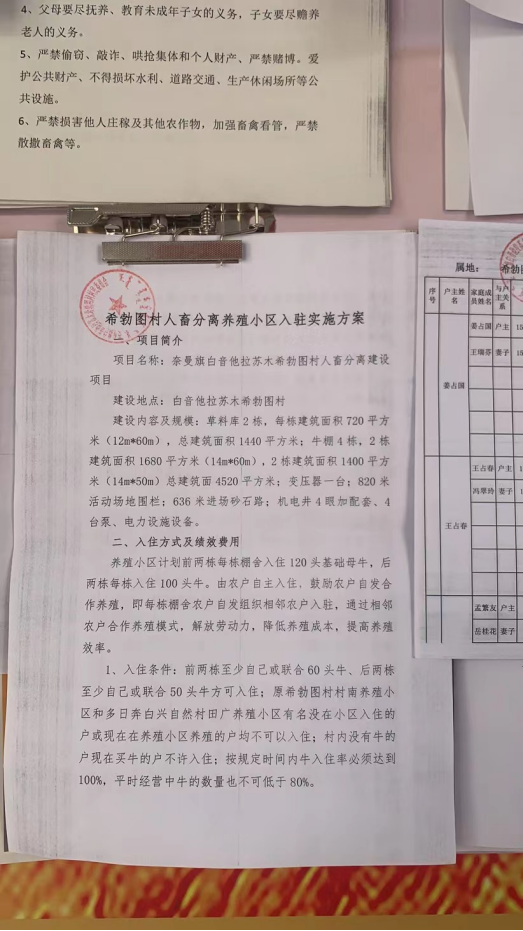 4、父母要尽抚养、教育未成年子女的义务，子女要尽赡养
老人的义务。
5、严禁偷窃、敲诈、哄抢集体和个人财产、严禁赌博。爱
护公共财产、不得损坏水利、道路交通、生产休闲场所等公
共设施。
6、严禁损害他人庄稼及其他农作物，加强畜禽看管，严禁
散撒畜禽等。
希勃图村人畜分离养殖小区入驻实施方案
一、项目简介
项目名称：奈曼旗白音他拉苏木希勃图村人畜分离建设
项目
建设地点：白音他拉苏木希勃图村
建设内容及规模：草料库2栋，每栋建筑面积720平方
米（12m*60m），总建筑面积1440平方米；牛棚4栋，2栋
建筑面积1680平方米（14m*60m），2栋建筑面积1400平方
米（14m*50m）总建筑面4520平方米；变压器一台；820米
活动场地围栏；636米进场砂石路；机电井4眼加配套、4
台泵、电力设施设备。
二、入住方式及绩效费用
养殖小区计划前两栋每栋棚舍入住120头基础母牛，后
两栋每栋入住100头牛。由农户自主入住、鼓励农户自发合
作养殖，即每栋棚舍农户自发组织相邻农户入驻，通过相邻
农户合作养殖模式，解放劳动力，降低养殖成本，提高养殖
效率。
1、入住条件：前两栋至少自己或联合60头牛、后两栋
至少自己或联合50头牛方可入住；原希勃图村村南养殖小
区和多日奔白兴自然村田广养殖小区有名没在小区入住的
户或现在在养殖小区养殖的户均不可以入住；村内没有牛的
户现在买牛的户不许入住；按规定时间内牛入住率必须达到
100%，平时经营中牛的数量也不可低于80%。
属地： 希勃
序号 户主姓名 家庭成员姓名 与户主关系
姜占国 姜占国 户主 15
王瑞芬 妻子 15
王占春 王占春 户主 1
冯翠玲 妻子 1
孟繁友 户主
岳桂花 妻子